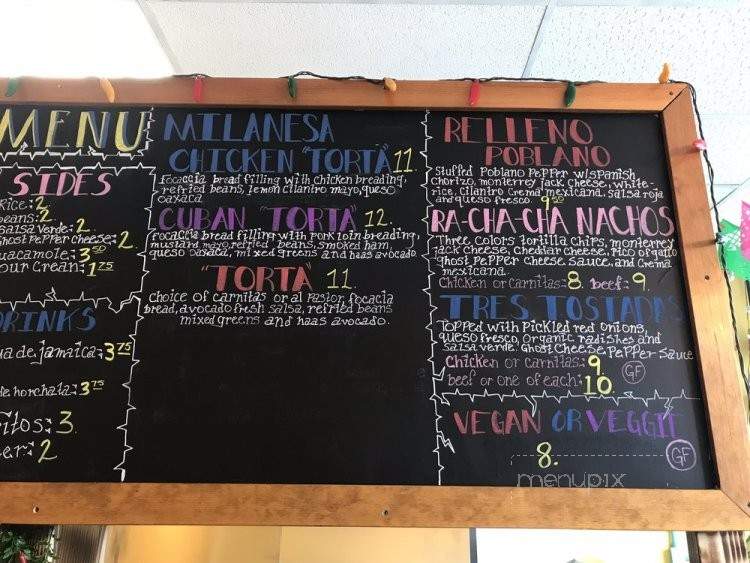 MENU
SIDES
Rice: 2
eans: 2
salsa verde: 2
Ghost Pepper cheese: 2
uacamole: 3 50
our crean: 1 75
RINKS
ua de jamaica: 3 75
de horchata: 3 75
itos: 3
er: 2
MILANESA
CHICKEN "TORTA" 11
Focaccia bread filling with chicken breading,
refried beans, lemon cilantro mayo, queso
oaxaca
CUBAN "TORTA" 12
Focaccia bread filling with pork loin breading,
mustard mayo, refried beans, smoked ham,
queso oaxaca, mixed greens and haas avocado
"TORTA" 11
choice of carnitas or al Pastor, focacia
bread, avocado fresh salsa, refried beans
mixed greens and haas avocado.
RELLENO
POBLANO
Stuffed Poblano Pepper w/spanish
chorizo, monterrey jack cheese, white-
rice, Cilantro Crema mexicana, salsa roja
and queso fresco. 9 50
RA-CHA-CHA NACHOS
Three colors tortilla chips, monterrey
jack cheese, chedlar cheese, Pico of gallo
ghost pepper cheese sauce, and crema
mexicana.
Chicken or carnitas: 8. beef: 9.
TRES TOSTADAS
TOPPed with Pickled red onions,
queso fresco, organic radishes and
salsa verde. Ghost Cheese Pepper sauce
Chicken or carnitas: 9.
beef or one of each: 10.
GF
VEGAN OR VEGGIE
8.
GF
menupix